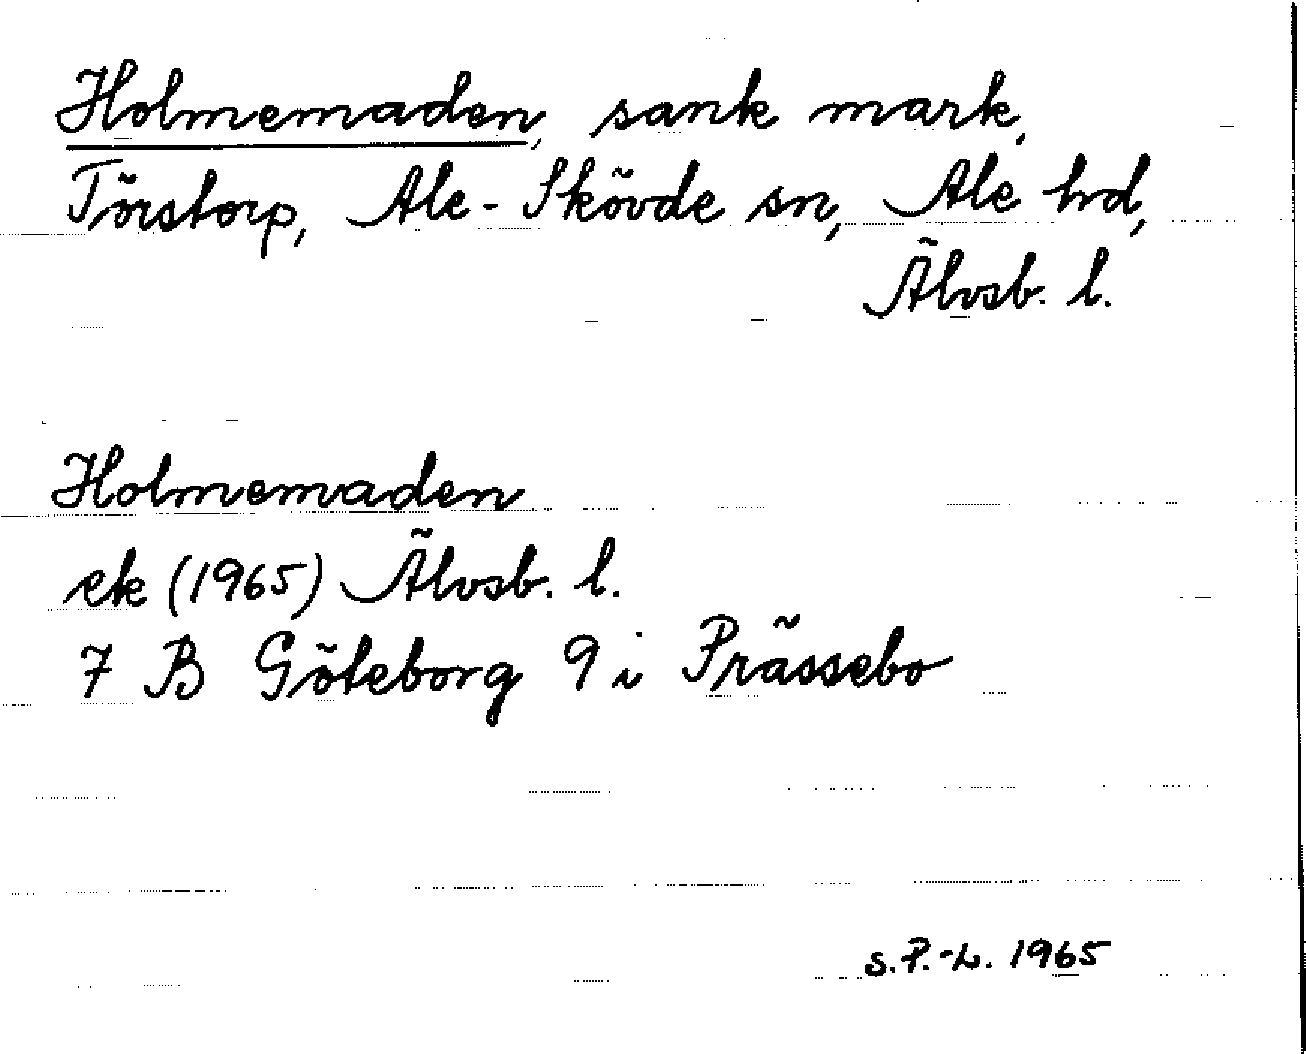 Holmemaden, sank mark,
Törstorp, Ale-Skövde sn, Ale hrd,
Älvsb. l.
Holmemaden
ek (1965) Älvsb. l.
7 B Göteborg 9 i Prässebo
S.P.-L. 1965